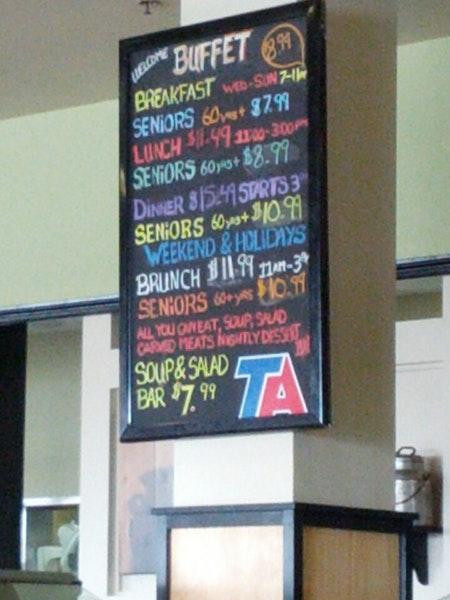 WELCOME BUFFET $8.99
BREAKFAST WED-SUN 7-11
SENIORS 60yrs+ $7.99
LUNCH $11.49 11:00-3:00pm
SENIORS 60yrs+ $8.99
DINNER $15.49 STARTS 3
SENIORS 60yrs+ $10.99
WEEKEND & HOLIDAYS
BRUNCH $11.99 11AM-3
SENIORS 60+yrs $10.99
ALL YOU CAN EAT, SOUP, SALAD
CARVED MEATS, NIGHTLY DESSERT
SOUP & SALAD
BAR $7.99
TA